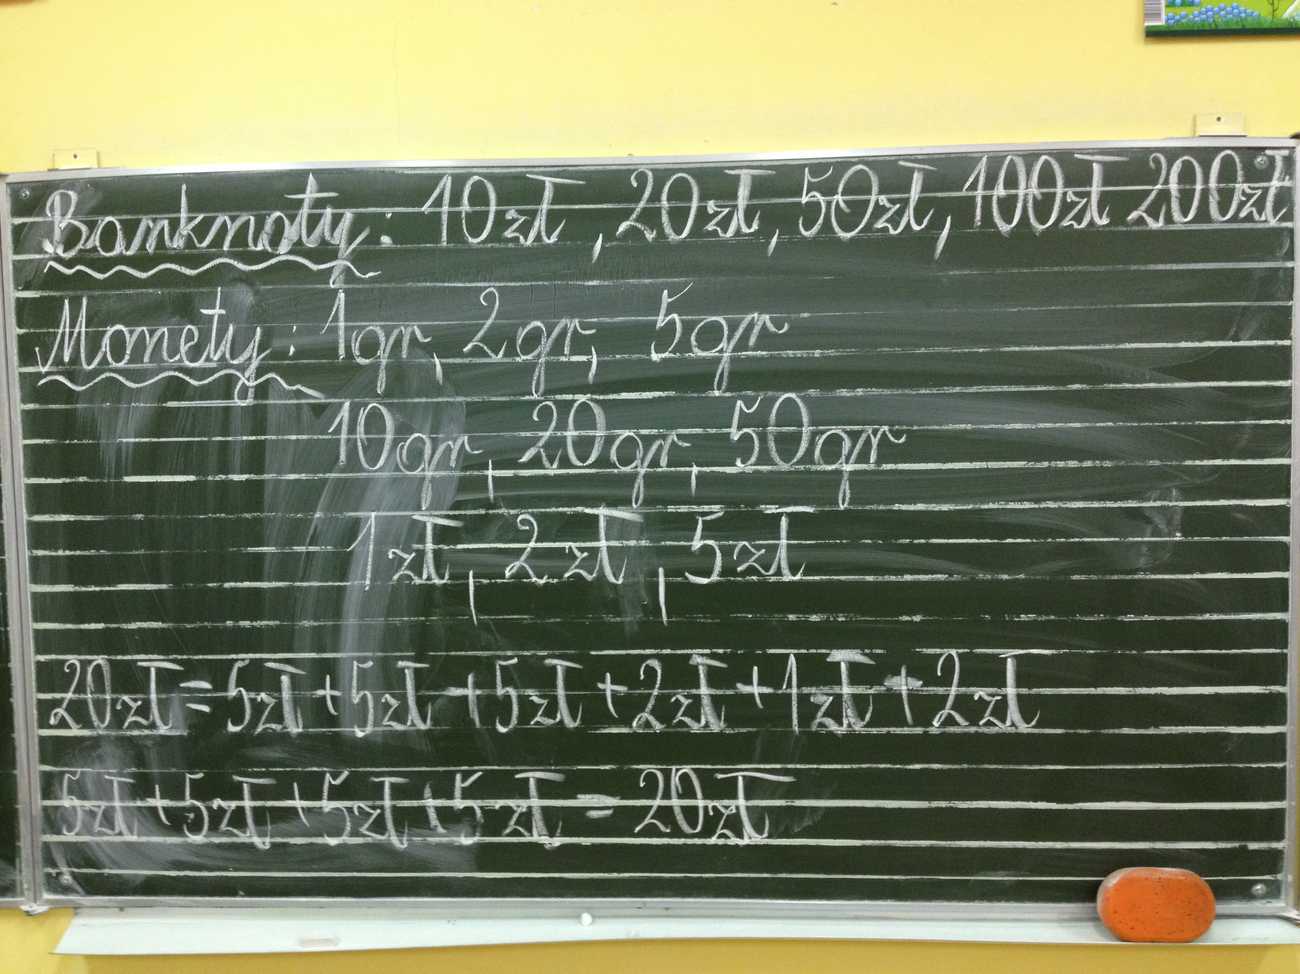 Banknoty: 10zł, 20zł, 50zł, 100zł 200zł
Monety: 1gr, 2gr, 5gr
10gr, 20gr, 50gr
1zł, 2zł, 5zł
20zł = 5zł + 5zł + 5zł + 2zł + 1zł + 2zł
5zł + 5zł + 5zł + 5zł = 20zł